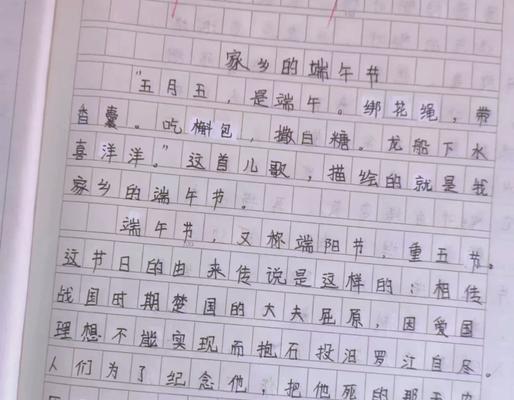 家乡的端午节
“五月五,是端午。绑花绳,带
香囊。吃槲包,撒白糖。龙船下水
喜洋洋。”这首儿歌,描绘的就是我
家乡的端午节。
端午节,又称端阳节,重五节。
这节日的由来传说是这样的:相传
战国时期楚国的大夫屈原,因爱国
理想不能实现而抱石投汨罗江自尽。
人们为了纪念他,把他死的那天